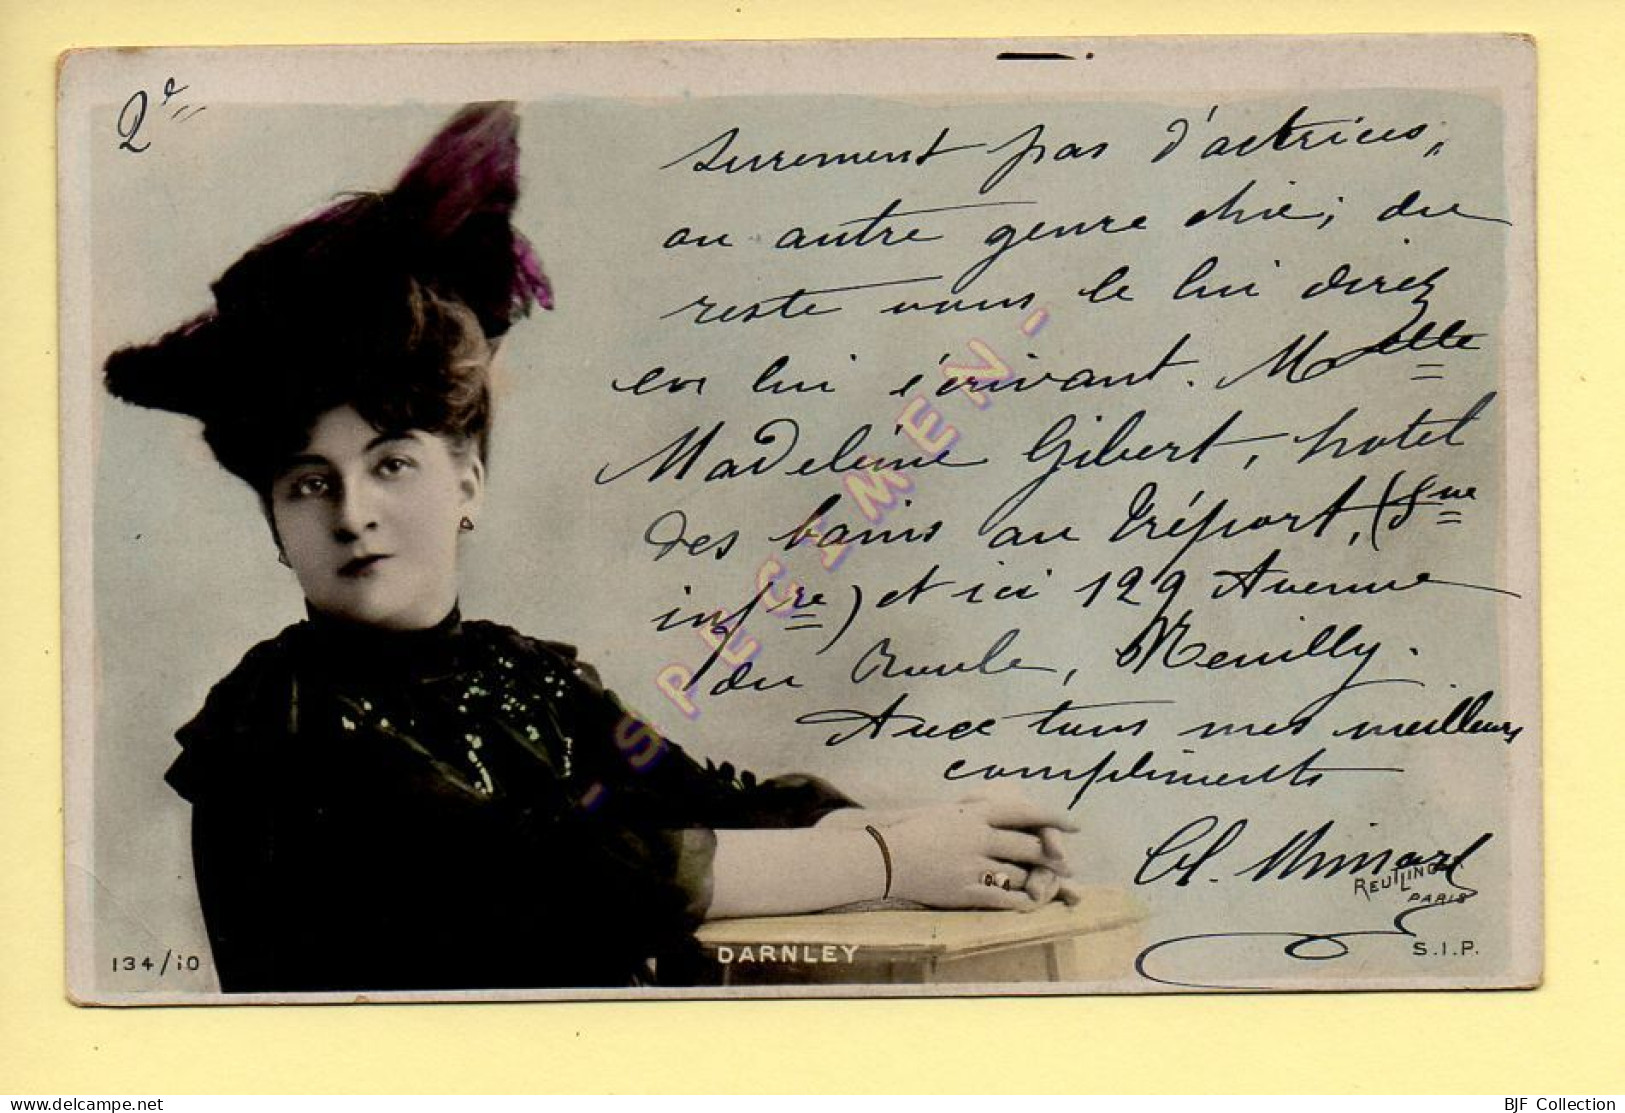 2e
surement pas d'actrices,
ou autre genre chic; du
reste vous le lui direz
en lui écrivant. Melle
Madeleine Gibert, hotel
des bains au Tréport, (Sne
infre) et ici 129 Avenue
du Roule, Neuilly.
Avec tous mes meilleurs
compliments
Ch. Minard
REUTLINGER
PARIS
S.I.P.
DARNLEY
134/10
- SPECIMEN -
BJF Collection
www.delcampe.net